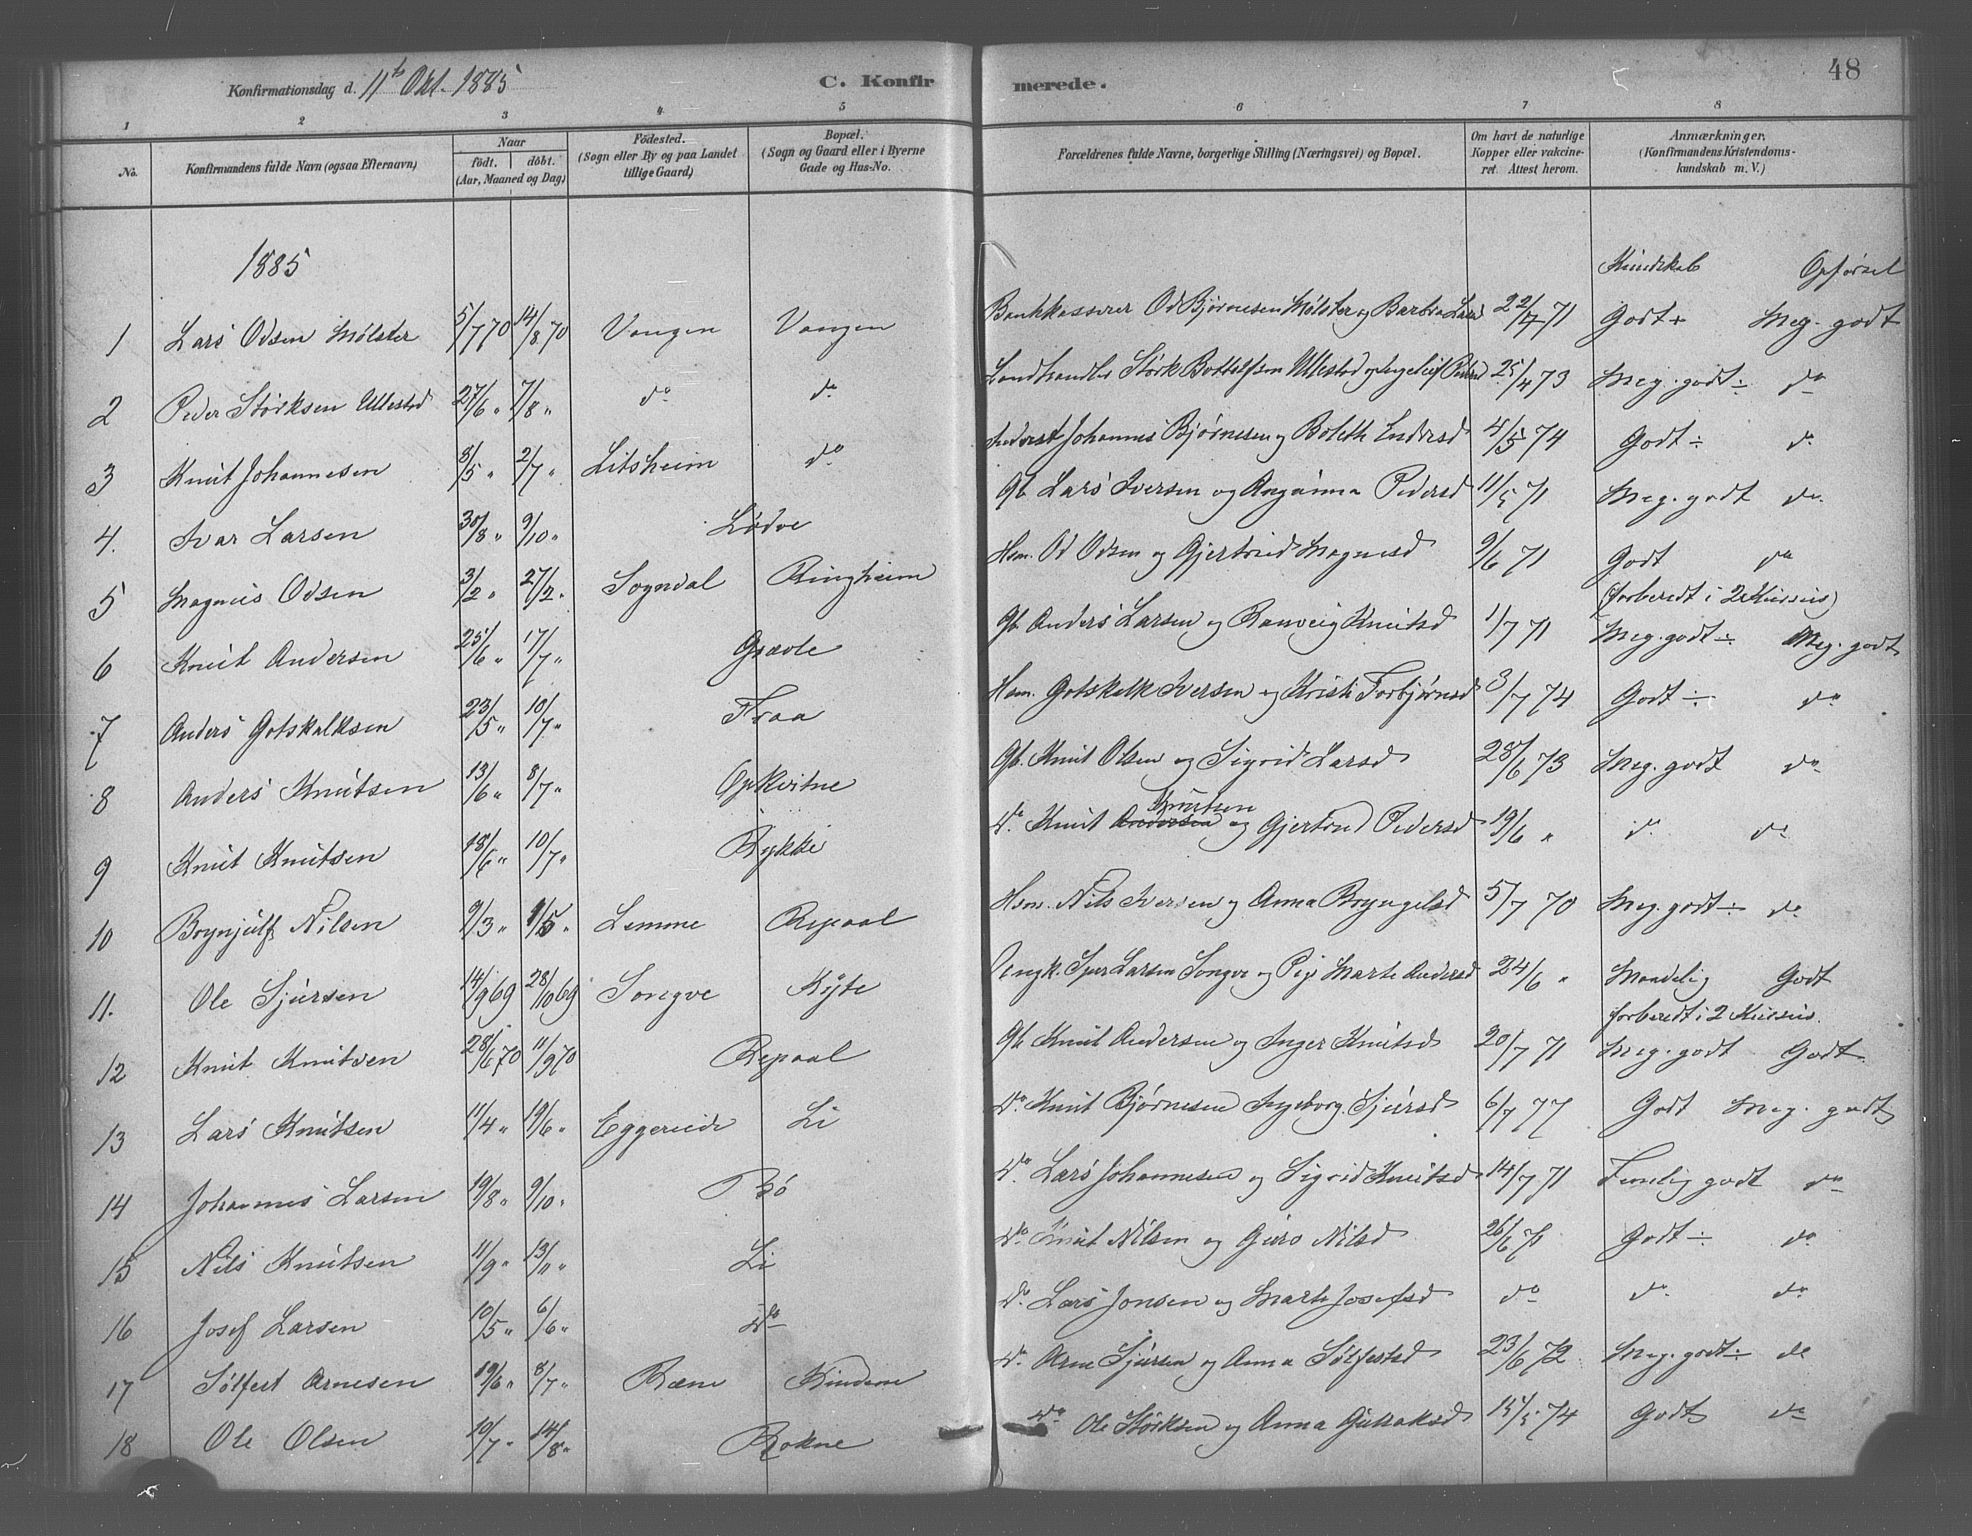 Konfirmationsdag d. 11te Okt. 1885
C. Konfirmerede.
48
1 2 3 4 5 6 7 8
No. Konfirmandens fulde Navn (ogsaa Efternavn) Naar født. døbt. (Aar, Maaned og Dag) Fødested. (Sogn eller By og paa Landet tillige Gaard) Bopæl. (Sogn og Gaard eller i Byerne Gade og Hus-No. Forældrenes fulde Navne, borgerlige Stilling (Næringsvei) og Bopæl. Om havt de naturlige Kopper eller vakcineret. Attest herom. Anmærkninger. (Konfirmandens Kristendomskundskab m. V.)
1885 Kundskab Opførsel
1 Lars Odsen Mølster 5/7 70 14/8 70 Vangen Vangen Bankkasserer Od Bjørnesen Mølster og Barbra Larsd 22/7 71 Godt + Meg. godt
2 Peder Størksen Ullestad 27/6 " 7/8 " do do Landhandler Størk Bottolfsen Ullestad og Ingeleif Pedersd 25/4 73 Meg. godt ÷ do
3 Knut Johannesen 8/5 " 2/7 " Litsheim do Johannes Bjørnesen og Boleth Endresd 4/5 74 Godt ÷ do
4. Ivar Larsen 30/8 " 9/10 " Lødve Gb. Lars Iversen og Anganna Pedersd 11/5 71 Meg. godt do
5 Magnus Odsen 3/2 " 27/2 " Sogndal Ringheim Hsm. Od Odsen og Gjertrud Magnesd 9/6 71 Godt do
(forberedt i 2 Kursus)
6 Knut Andersen 25/6 " 17/7 " Græve Gb. Anders Larsen og Ranveig Knutsd 1/7 71 Meg. godt ÷ Meg. godt
7 Anders Gotskalksen 23/5 " 10/7 " Fraa Hsm. Gotskalk Iversen og Kristi Torbjørnsd 3/7 74 Godt ÷ do
8 Anders Knutsen 13/6 " 8/7 " Opkvitne Gb. Knut Olsen og Sigrid Larsd 28/6 73 Meg. godt do
9 Knut Knutsen 18/6 " 10/7 " Rykke do. Knut Andersen Knutsen og Gjertrud Pedersd 19/6 " do do
10 Brynjulf Nilsen 9/3 " 1/5 " Lemme Repaal Hsm. Nils Iversen og Anna Bryngelsd 5/7 70 Meg. godt ÷ do
11. Ole Sjursen 14/9 69 28/10 69 Songve Kyte Ungk. Sjur Larsen Songve og Pige Marte Andersd 24/6 " Maadelig Godt
forberedt i 2 Kursus.
12 Knut Knutsen 28/6 70 11/9 70 Repaal Gb. Knut Andersen og Inger Knutsd 20/7 71 Meg. godt Godt
13 Lars Knutsen 11/4 " 19/6 " Eggereide Li do. Knut Bjørnesen Ingeborg Sjursd 6/7 77 Godt Meg. godt
14 Johannes Larsen 19/8 " 9/10 " Bø do. Lars Johannesen og Sigrid Knutsd 14/7 71 Temlig godt do
15 Nils Knutsen 11/9 " 13/11 " Li do. Knut Nilsen og Guro Nilsd 26/6 71 Godt ÷ do
16 Josef Larsen 10/5 " 6/6 " do do. Lars Jonsen og Marte Josefsd do do do
17 Sølfest Arnesen 19/6 " 8/7 " Ræne Kindem do. Arne Sjursen og Anna Sølfestsd 23/6 72 Meg. godt ÷ do
18 Ole Olsen 10/7 " 14/8 " Rokne do Ole Størksen og Anna 15/5 74 Godt do